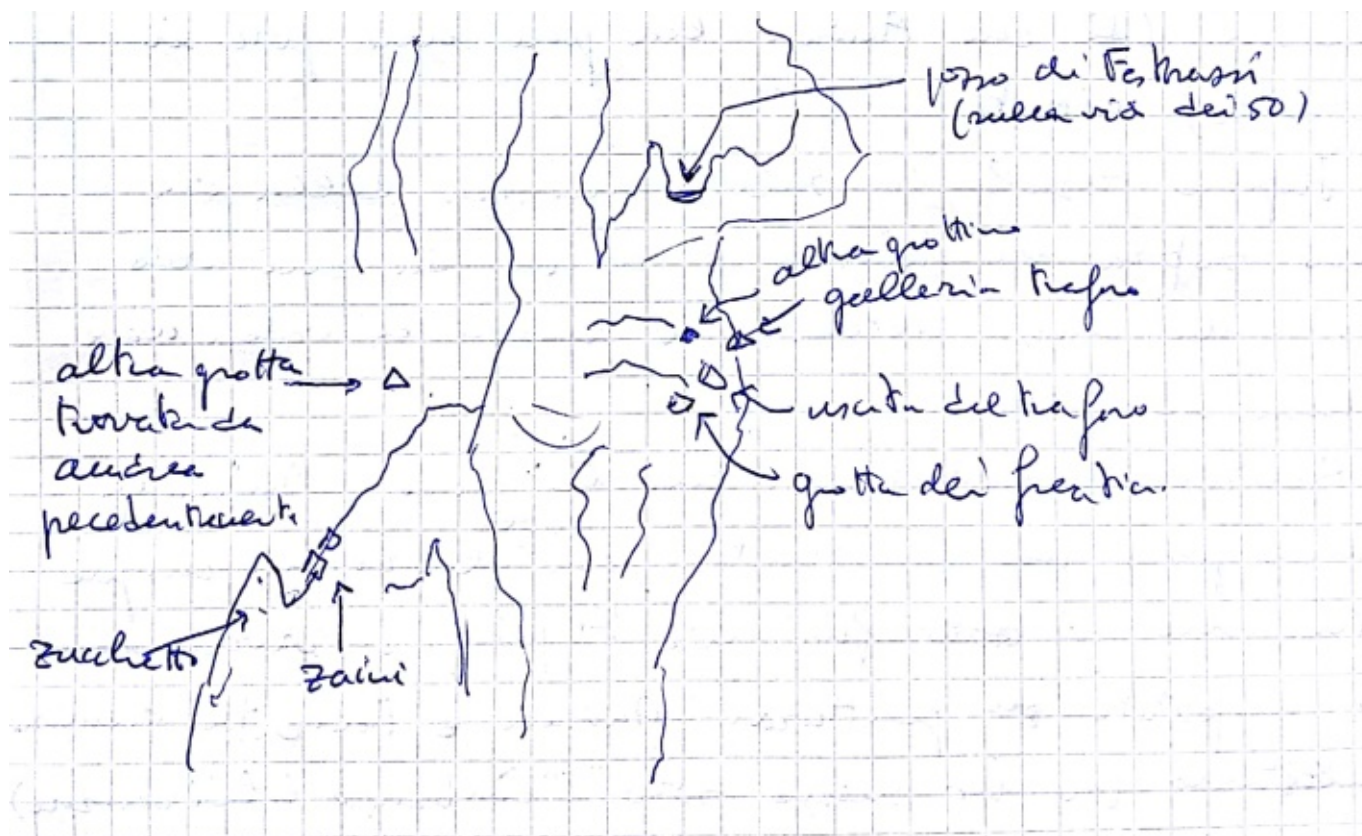 pozzo di
(sulla via dei 50)
altra grottino
galleria traforo
altra grotta
trovata da
andrea
precedentemente
uscita del traforo
grotta dei freatici
zucchetto
zaini